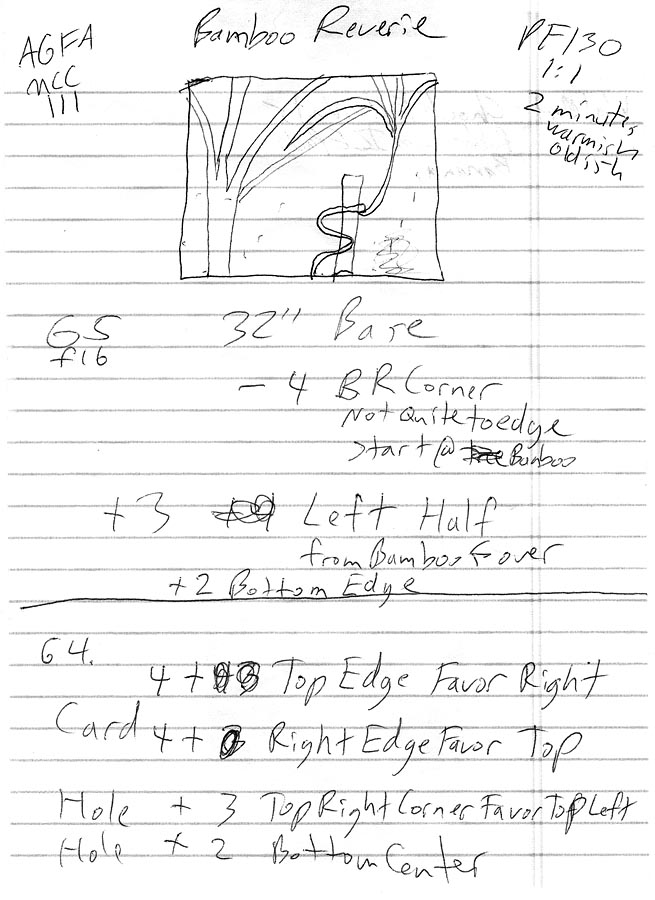 Bamboo Reverie
AGFA
MCC
111
PF130
1:1
2 minutes
warmish
oldish
G5
f16
32" Base
- 4 BR Corner
Not Quite to edge
Start @ Bamboo
+ 3 Left Half
from Bamboo over
+ 2 Bottom Edge
G 4.
4 + Top Edge Favor Right
Card 4 + Right Edge Favor Top
Hole + 3 Top Right Corner Favor Top Left
Hole + 2 Bottom Center